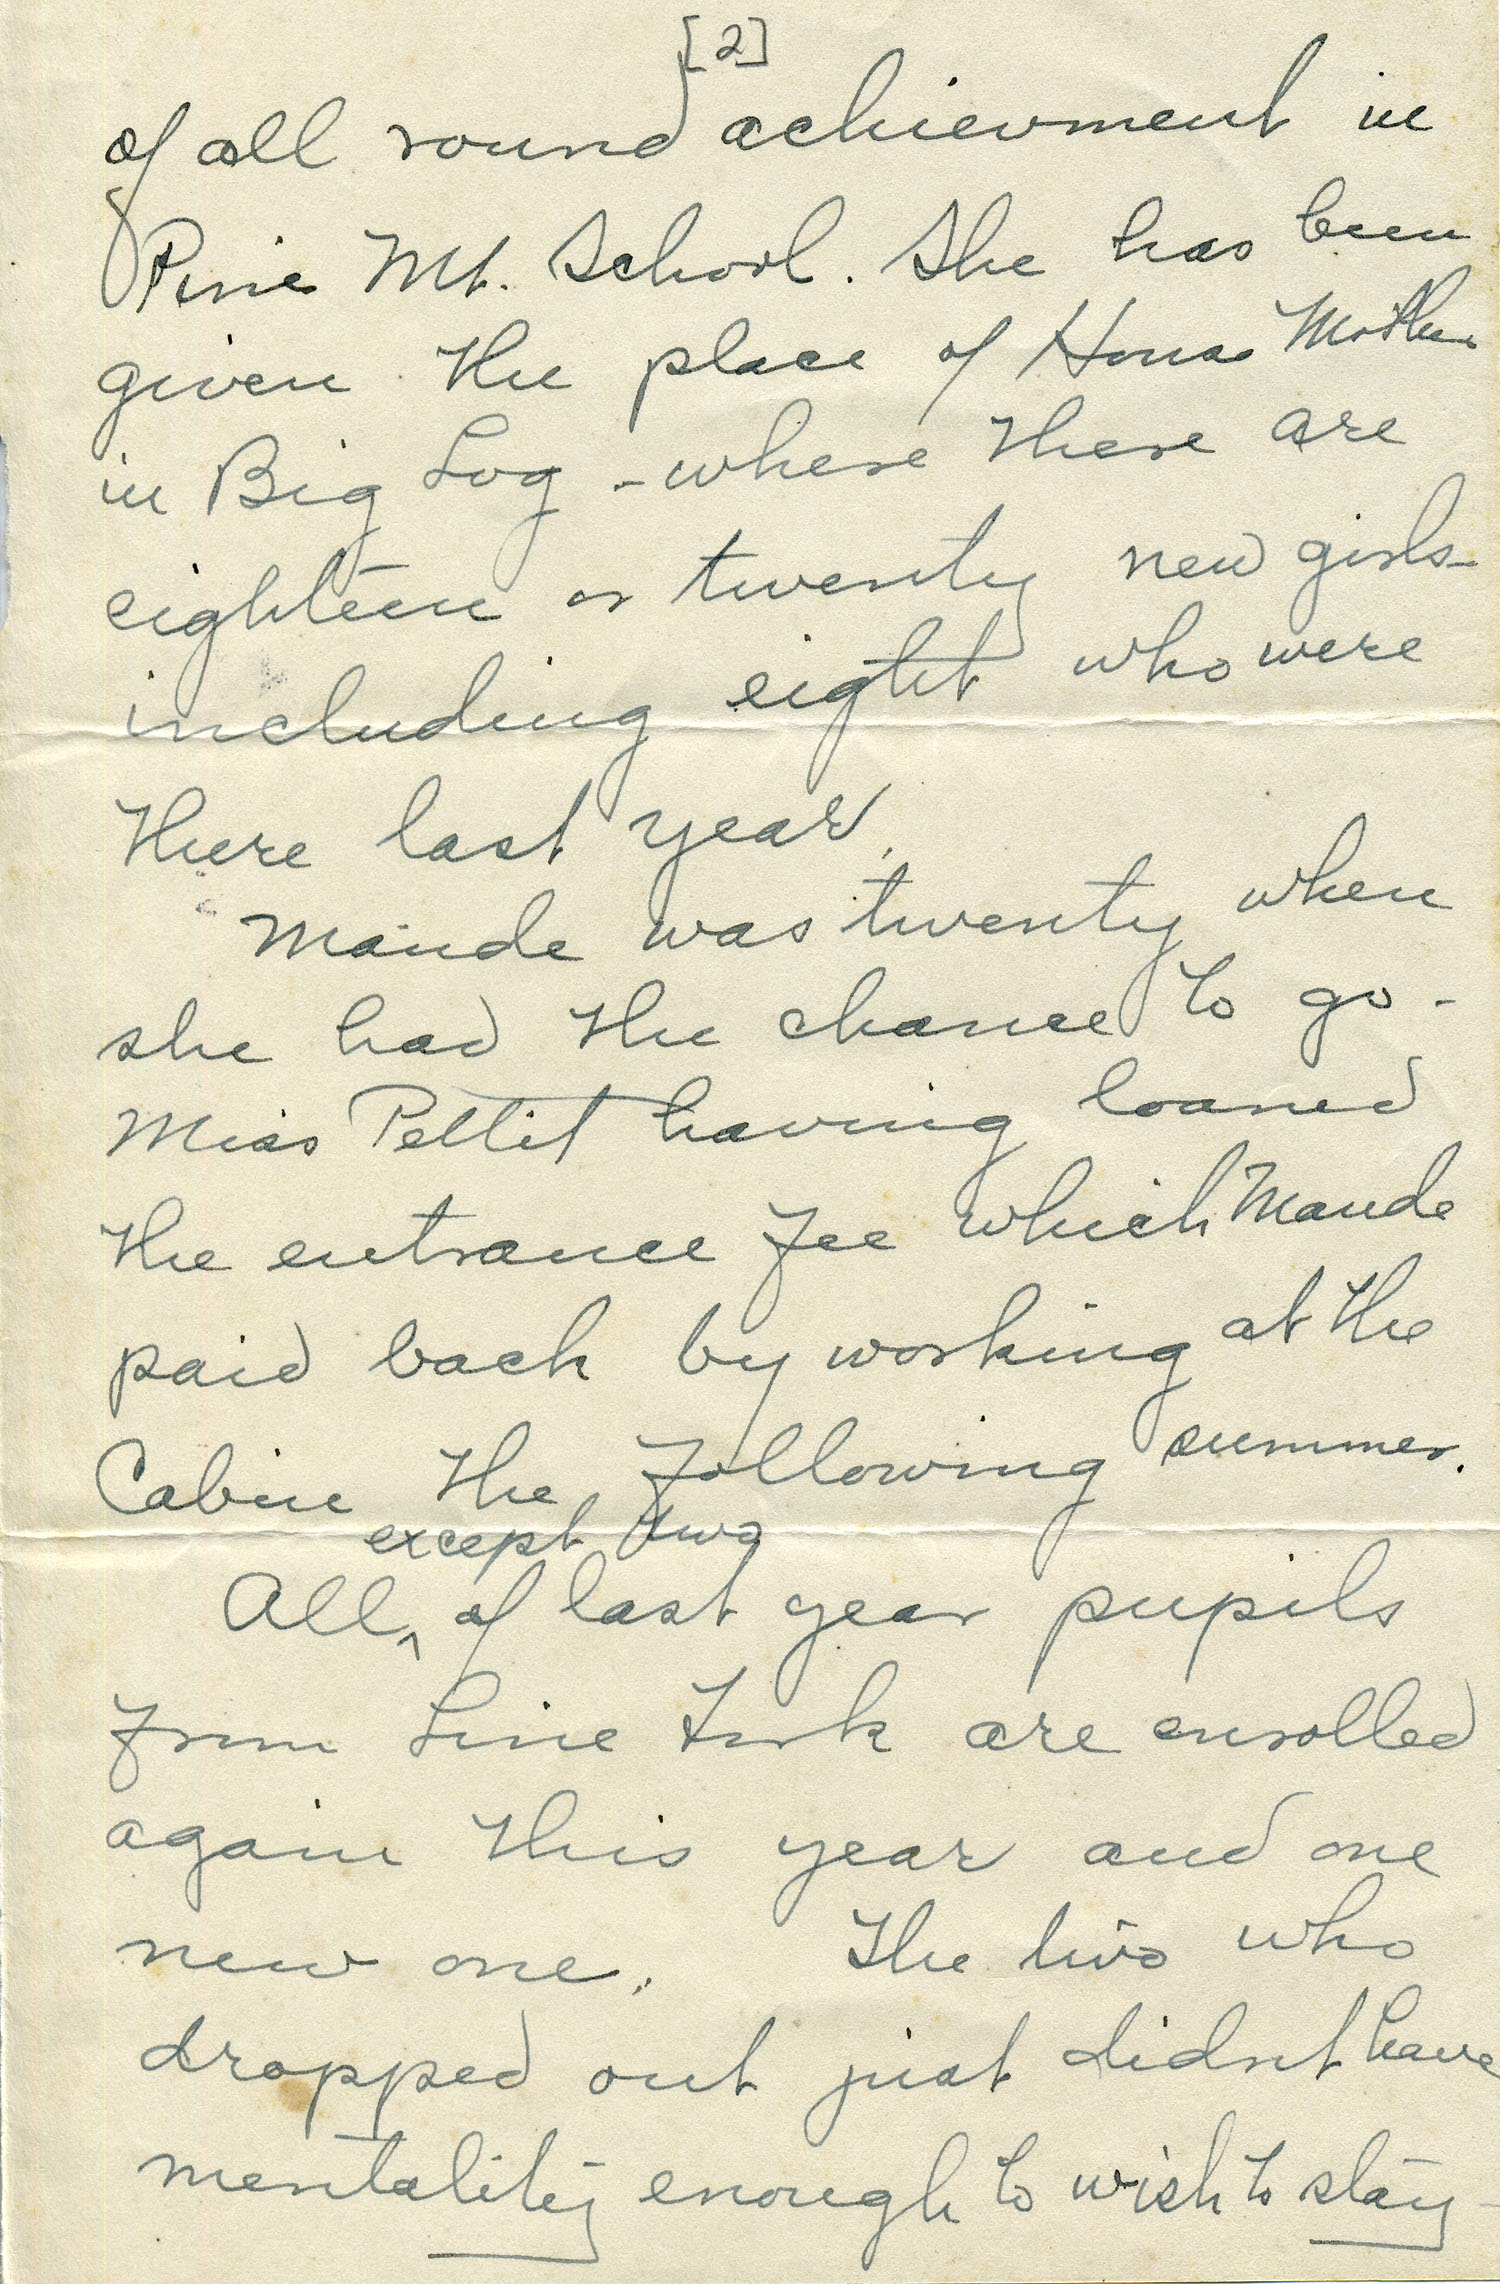 [2]
of all round achievment in
Pine Mt. School. She has been
given the place of House Mother
in Big Log - where there are
eighteen or twenty new girls -
including eight who were
there last year.
Maude was twenty when
she had the chance to go -
Miss Pettit having loaned
the entrance fee which Maude
paid back by working at the
Cabin the following summer.
except two
All ^ of last year pupils
from Line Fork are enrolled
again this year and one
new one. The two who
dropped out just didnt have
mentality enough to wish to stay -